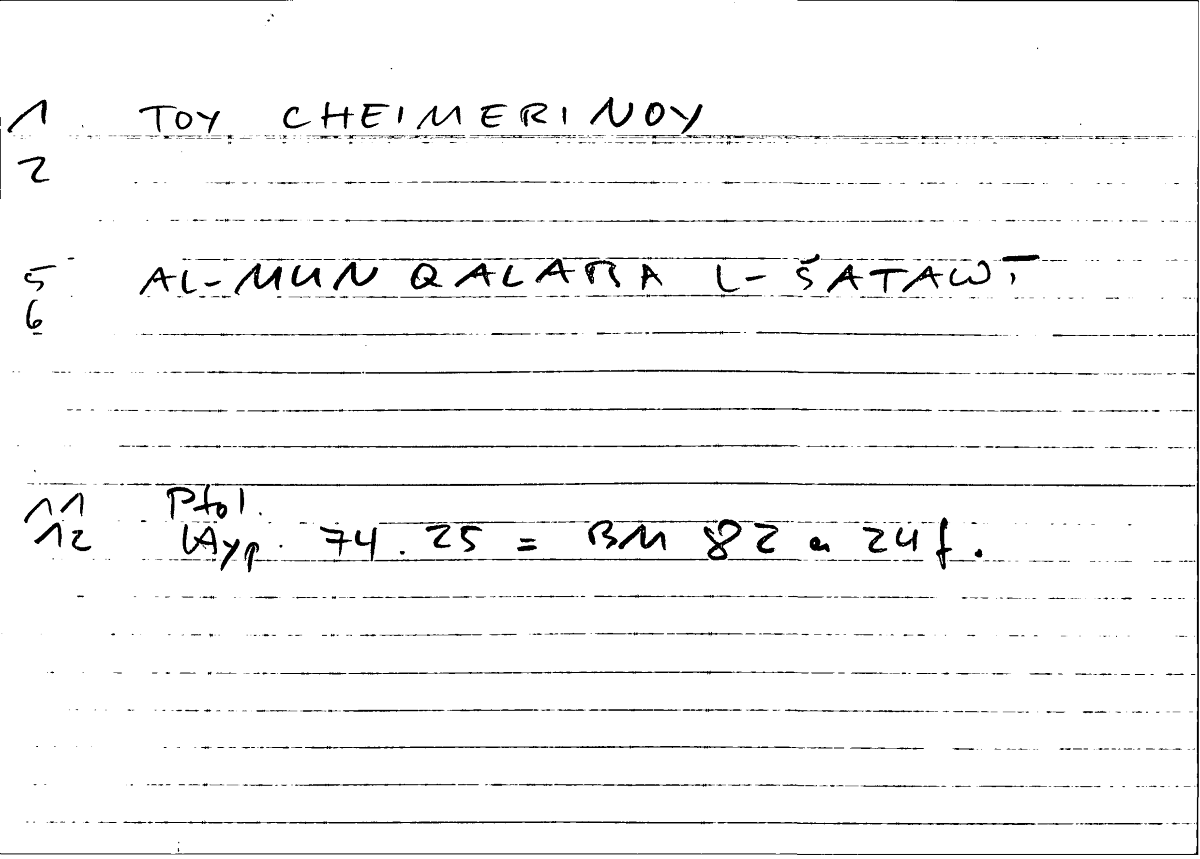 1 TOY CHEIMERINOY
2
5 AL-MUNQALABA L-ŠATAWĪ
6
11 Ptol.
12 Hyp. 74.25 = BM 82 a 24 f.